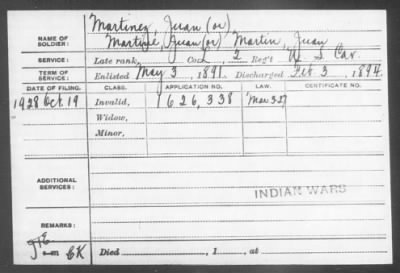 Martinez, Juan (or)
NAME OF SOLDIER: Martine, Juan (or) Martin, Juan
SERVICE: Late rank, Co. 2 Reg't U. S. Cav.
TERM OF SERVICE: Enlisted May 3, 1891, Discharged Feb 3, 1894.
DATE OF FILING. CLASS. APPLICATION NO. LAW. CERTIFICATE NO.
1928 Oct. 19 Invalid, 1626,338 Mar 3-27
Widow,
Minor,
ADDITIONAL SERVICES:
INDIAN WARS
REMARKS:
CK Died , 1 , at